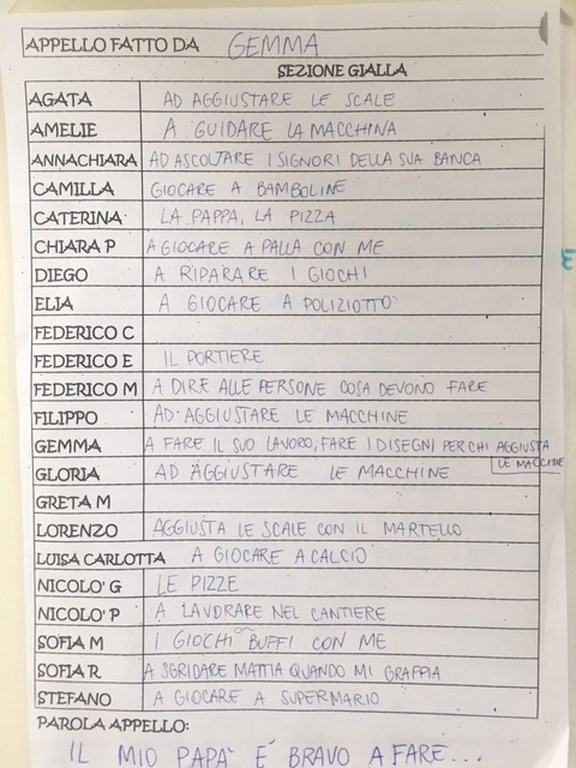 APPELLO FATTO DA GEMMA
SEZIONE GIALLA
AGATA AD AGGIUSTARE LE SCALE
AMELIE A GUIDARE LA MACCHINA
ANNACHIARA AD ASCOLTARE I SIGNORI DELLA SUA BANCA
CAMILLA GIOCARE A BAMBOLINE
CATERINA LA PAPPA, LA PIZZA
CHIARA P A GIOCARE A PALLA CON ME
DIEGO A RIPARARE I GIOCHI
ELIA A GIOCARE A POLIZIOTTO
FEDERICO C
FEDERICO E IL PORTIERE
FEDERICO M A DIRE ALLE PERSONE COSA DEVONO FARE
FILIPPO AD AGGIUSTARE LE MACCHINE
GEMMA A FARE IL SUO LAVORO, FARE I DISEGNI PER CHI AGGIUSTA
LE MACCHINE
GLORIA AD AGGIUSTARE LE MACCHINE
GRETA M
LORENZO AGGIUSTA LE SCALE CON IL MARTELLO
LUISA CARLOTTA A GIOCARE A CALCIO
NICOLO' G LE PIZZE
NICOLO' P A LAVORARE NEL CANTIERE
SOFIA M I GIOCHI BUFFI CON ME
SOFIA R A SGRIDARE MATTIA QUANDO MI GRAFFIA
STEFANO A GIOCARE A SUPERMARIO
PAROLA APPELLO:
IL MIO PAPA' E' BRAVO A FARE...